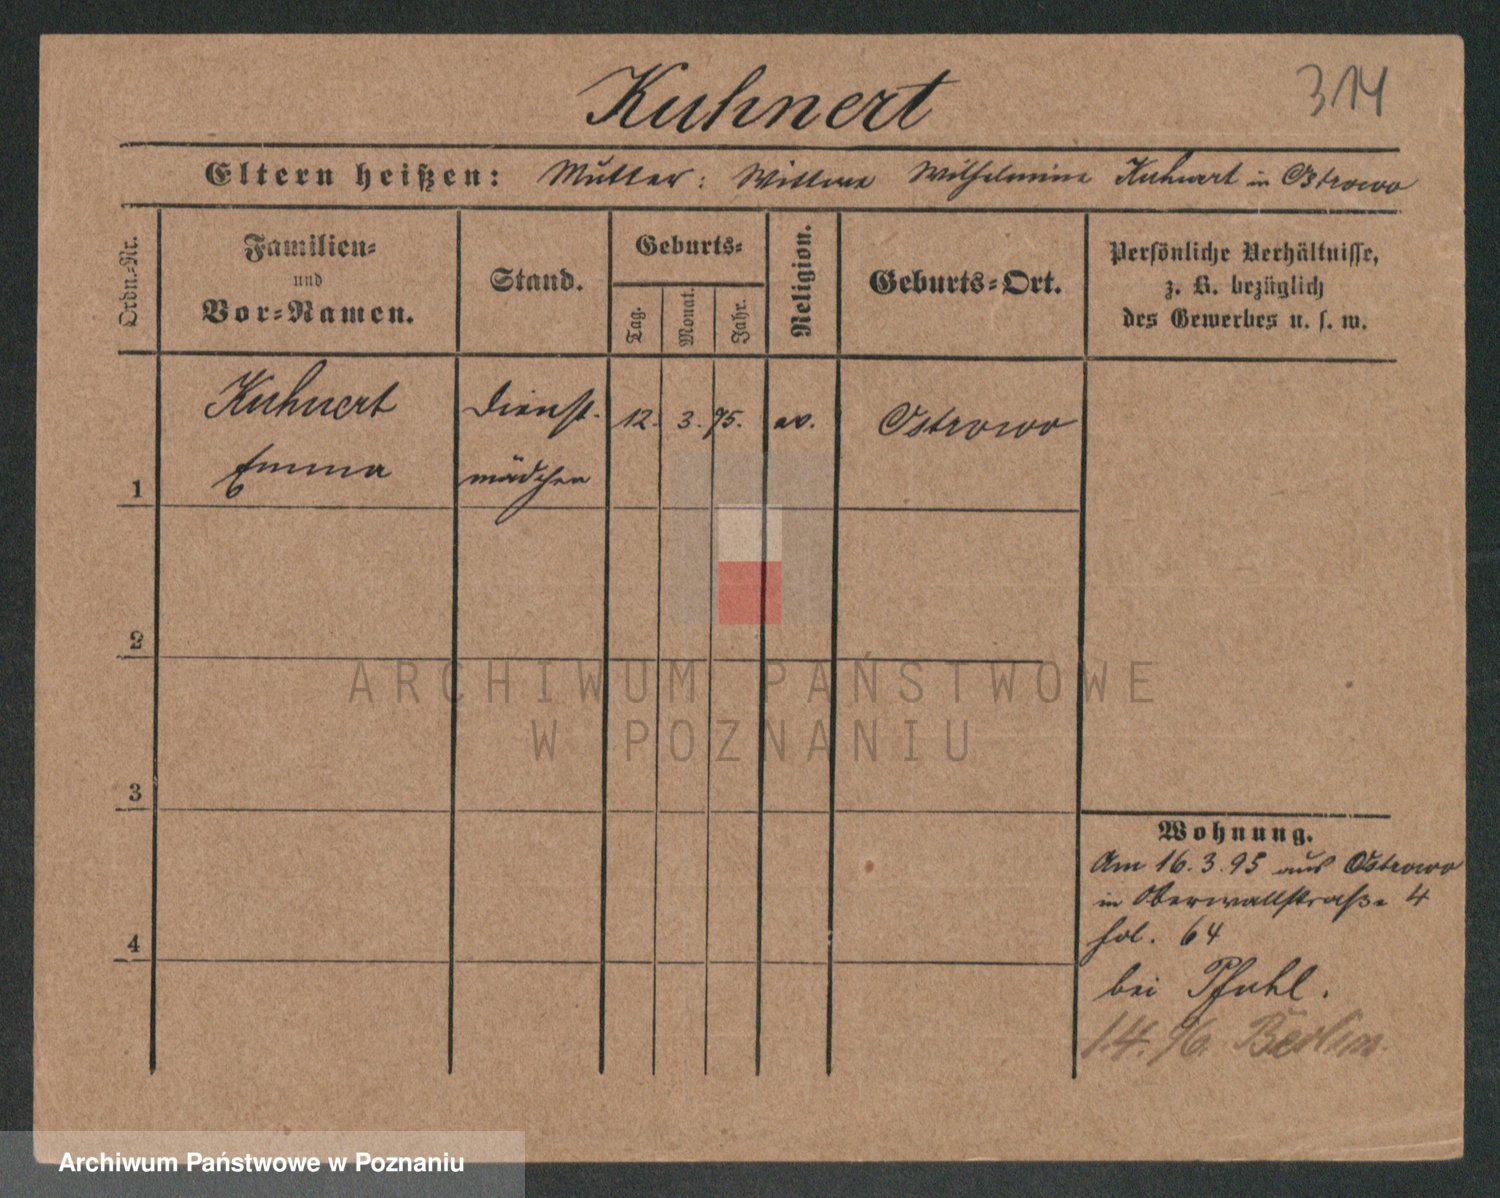 Kuhnert
314
Eltern heißen: Mutter: Wittwe Wilhelmine Kuhnert in Ostrowo
Ordn.-Nr.
Familien-
und
Vor-Namen.
Stand.
Geburts-
Tag.
Monat.
Jahr.
Religion.
Geburts-Ort.
Persönliche Verhältnisse,
z. B. bezüglich
des Gewerbes u. s. w.
Kuhnert Dienst- 12. 3. 75. ev. Ostrowo
1 Emma mädchen
2
ARCHIWUM PAŃSTWOWE
W POZNANIU
3
Wohnung.
Am 16.3.95 aus Ostrowo
in Oberwallstraße 4
fol. 64
4
bei Pfuhl.
1.4.96. Berlin.
Archiwum Państwowe w Poznaniu